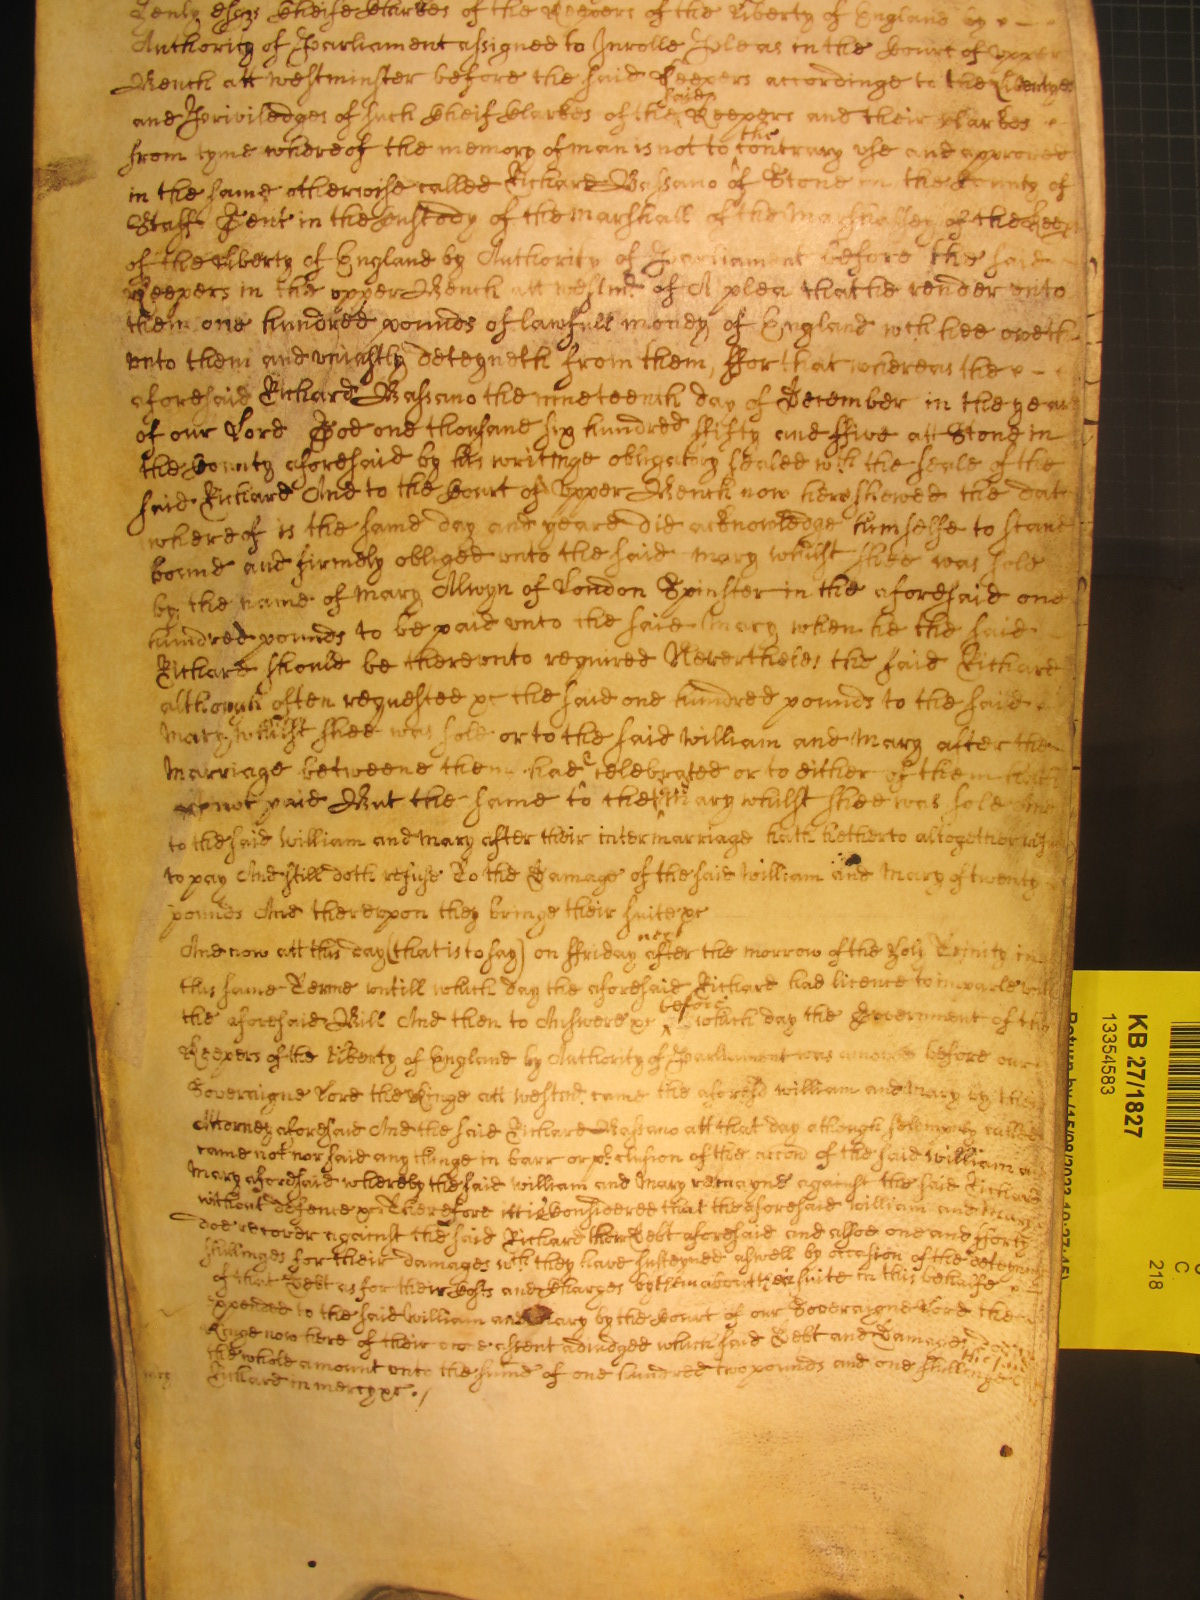 Henly Esqrs Cheife Clarkes of the Keepers of the Liberty of England by
Authority of Parliament assigned to Inrolle Pleas in the Court of upper
Bench att Westminster before the said Keepers accordinge to the Libertyes
and Priviledges of such Cheif Clarkes of the said Keepers and their Clarkes
from tyme whereof the memory of man is not to the contrary use and approved
in the same otherwise called Richard Bassano of Stone in the County of
Staff Gent in the Custody of the Marshall of the Marshalsey of the Keep
of the Liberty of England by Authority of Parliament before the said
Keepers in the upper Bench att Westmr of A plea that he render unto
them one hundred pounds of lawfull money of England wch hee oweth
unto them and uniustly deteyneth from them, ffor that whereas the
aforesaid Richard Bassano the nineteenth day of December in the year
of our Lord God one thousand six hundred ffifty and ffive att Stone in
the County aforesaid by his writinge obligatory sealed wth the seale of the
said Richard And to the Court of Upper Bench now here shewed the date
whereof is the same day and yeare did acknowledge himselfe to stand
bound and firmely obliged unto the said Mary whilst shee was sole
by the name of Mary Alwyn of London Spinster in the aforesaid one
hundred pounds to be paid unto the said Mary when he the said
Richard should be thereunto required Neverthelés the said Richard
although often requested &c the said one hundred pounds to the said
Mary whilst shee was sole or to the said William and Mary after the
Marriage betweene them had celebrated or to either of them hath
not paid But the same to the Mary whilst shee was sole And
to the said William and Mary after their intermarriage hath hetherto altogether
to pay And still doth refuse To the Damage of the said William and Mary of twenty
pounds And thereupon they bringe their suite &c
And now att this day (that is to say) on ffriday next after the morrow of the Holy Trinity in
this same Terme untill which day the aforesaid Richard had licence to imparle
the aforesaid Bill And then to Answere &c before which day the Government of the
Keepers of the Liberty of England by Authority of Parliament was before our
Soveraigne Lord the Kinge att Westmr came the aforesd William and Mary by their
Attorney aforesaid And the said Richard Bassano att that day although solempnly called
came not nor said any thinge in barr or pclusion of the accon of the said William
Mary aforesaid whereby the said William and Mary remayne against the said Richard
without defence &c Therefore itt is Considered that the aforesaid William and Mary
doe recover against the said Richard their Debt aforesaid and alsoe one and fforty
shillinges for their damages wch they have susteyned aswell by occasion of the
of that Debt as for their Costs and Charges by them about their suite in this behalfe
expended to the said William and Mary by the Court of our Soveraigne Lord the
Kinge now here of their owne assent adiudged which said Debt and Damages
the whole amount unto the summe of one hundred two pounds and one shillinge the said
Richard in mercy &c.
KB 27/1827
13354583
218
C